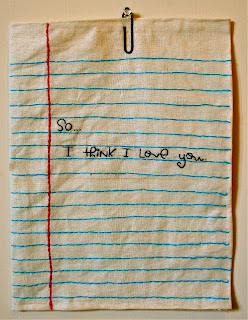 So...
I think I love you...